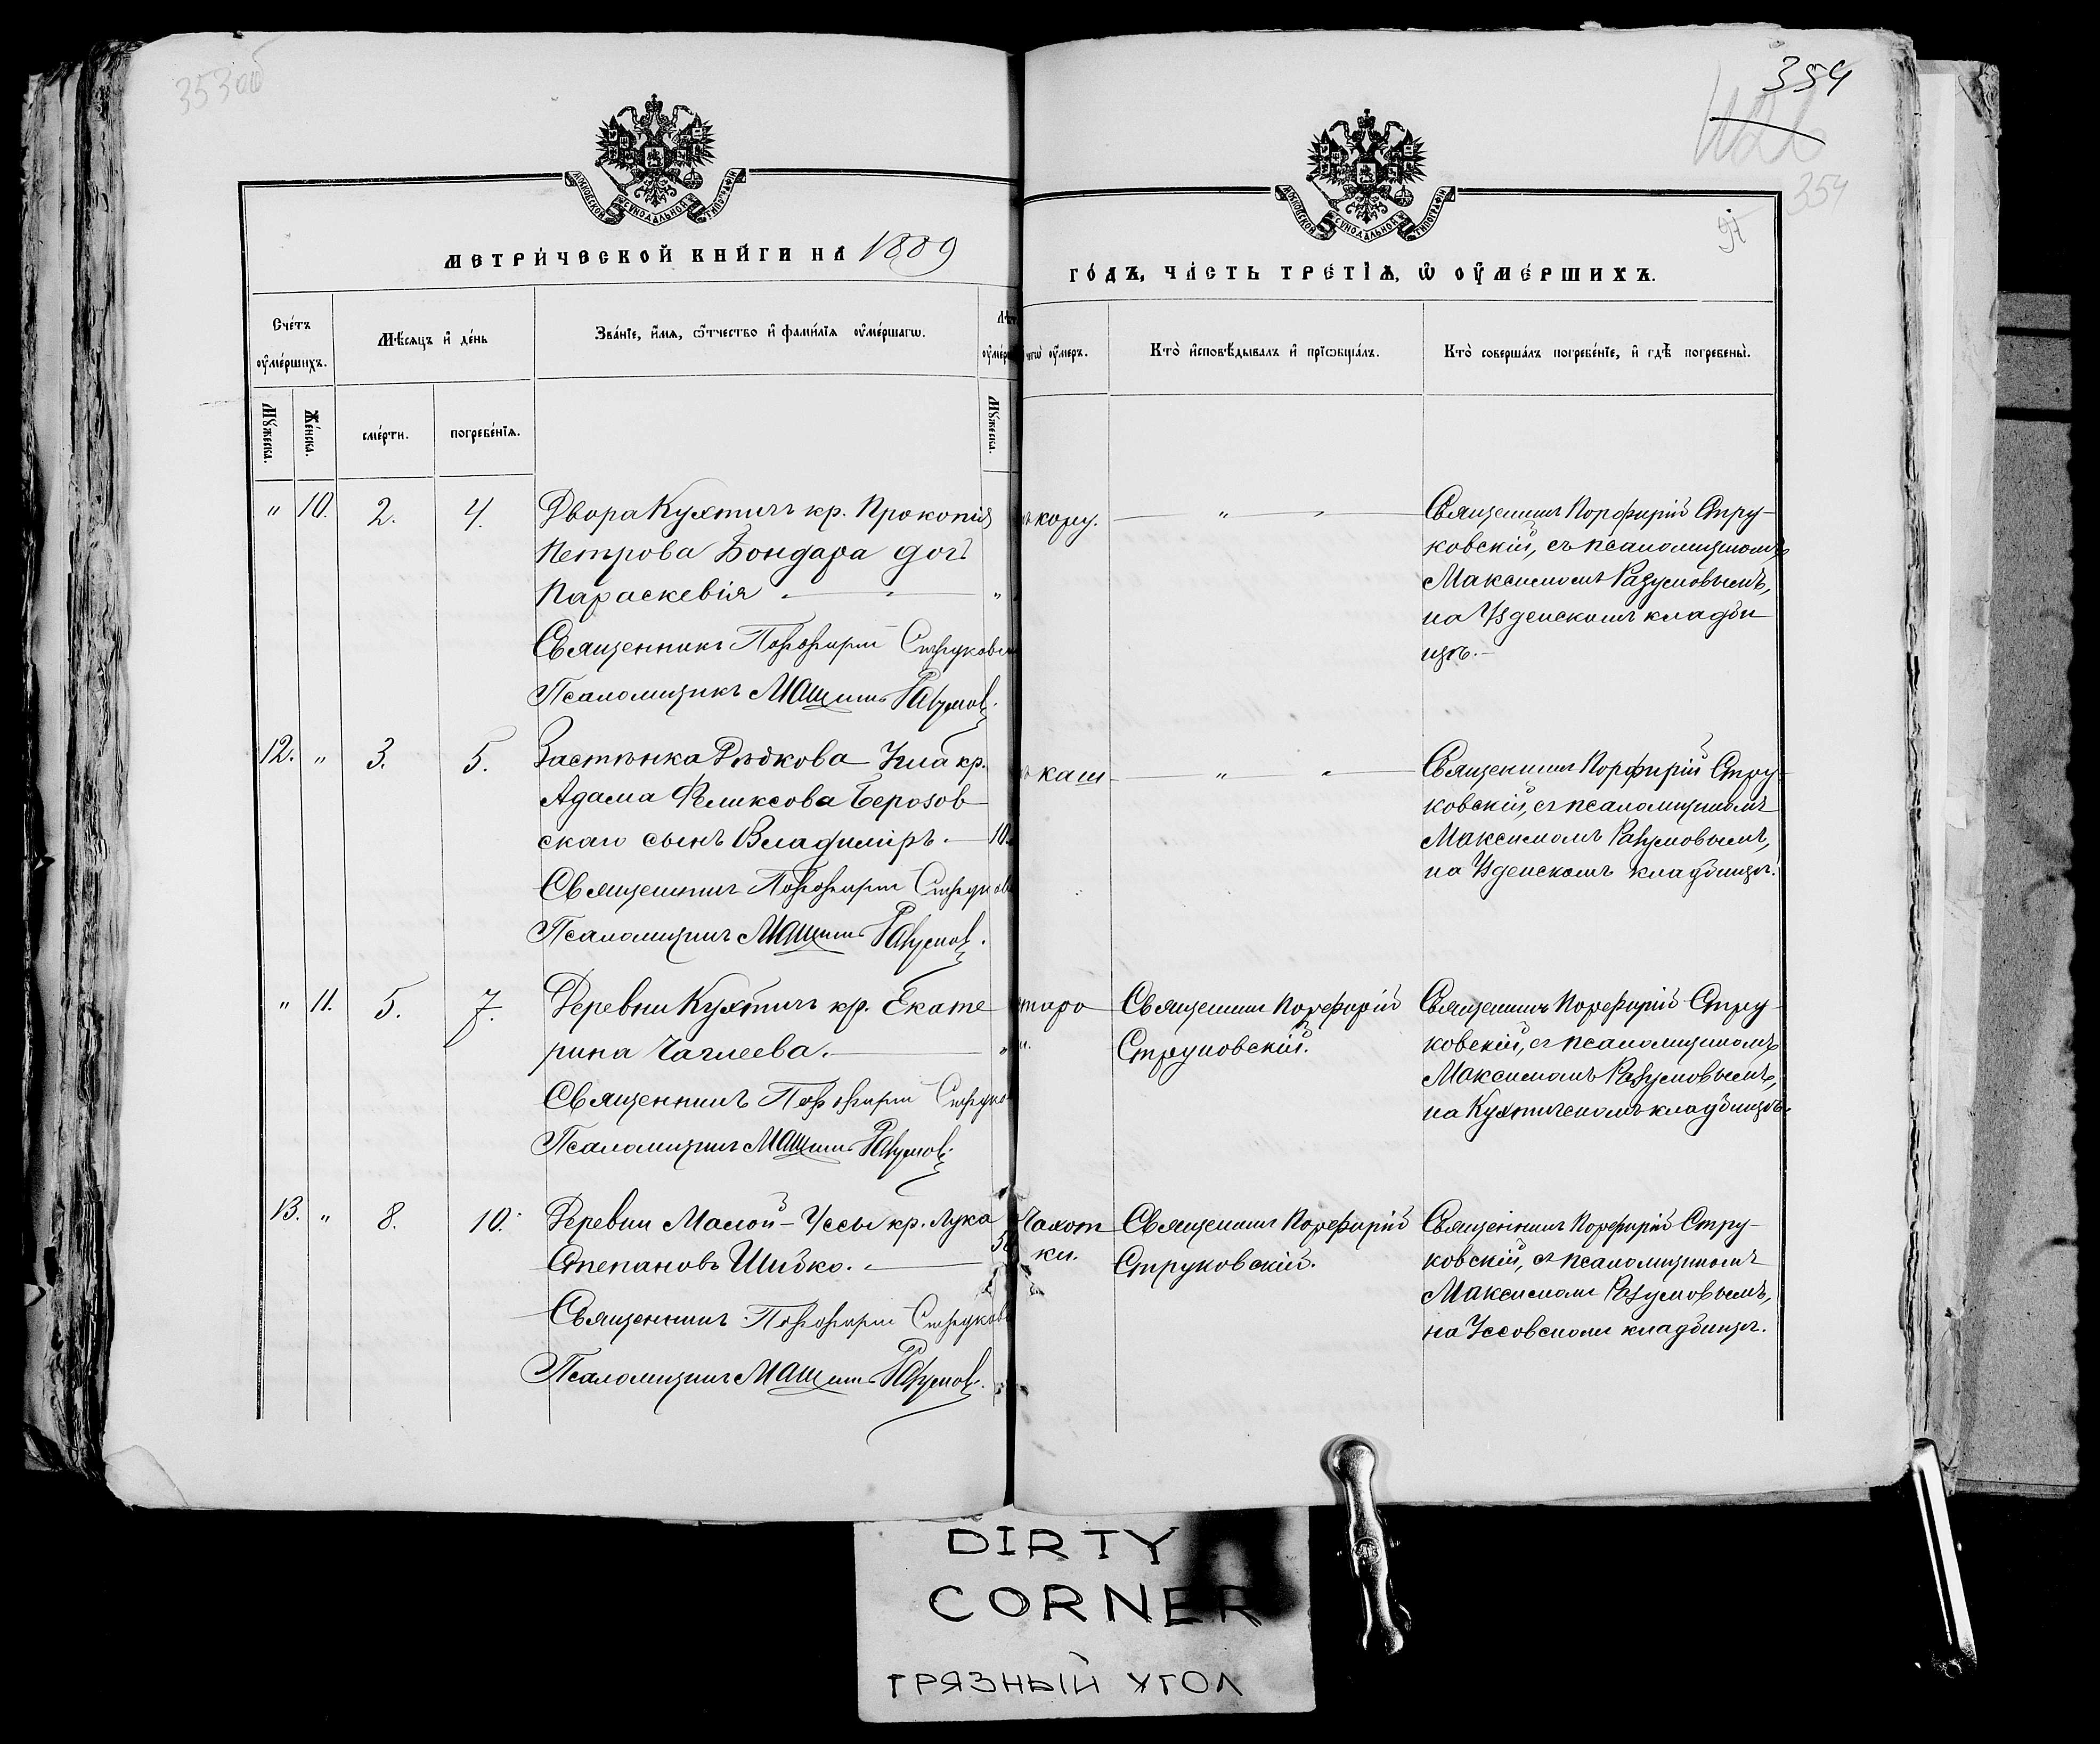 353об
354
354
МОСКОВСКОЙ СѴНОДАЛЬНОЙ ТИПОГРАФІИ
МОСКОВСКОЙ СѴНОДАЛЬНОЙ ТИПОГРАФІИ
МЕТРИ́ЧЕСКОЙ КНИ́ГИ НА 1889
ГО́ДЪ, ЧА́СТЬ ТРЕ́ТІѦ, Ѡ ОУ҆МЕ́РШИХЪ.
Сче́тъ оу҆ме́ршихъ.
Мѣ́сѧцъ и҆ де́нь
Зва́нїе, и҆́мѧ, ѻ҆́тчество и҆ фами́лїѧ оу҆ме́ршагѡ.
Лѣт
оу҆ме́р
чегѡ̀ оу҆́меръ.
Кто̀ и҆сповѣ́дывалъ и҆ прїѡбща́лъ.
Кто̀ соверша́лъ погребе́нїе, и҆ гдѣ̀ погребены̀.
Мꙋ́жеска.
Же́нска.
сме́рти.
погребе́нїѧ.
Мꙋ́жеска.
" 10. 2. 4. Двора Кухтичъ кр. Прокопія
Петрова Бондара дочь
Параскевія — "
Священникъ Порфирій Струковск
Псаломщикъ Максимъ Разумовъ.
кору. — " —
Священникъ Порфирій Стру-
ковскій, съ псаломщикомъ
Максимомъ Разумовымъ,
на Узденскомъ кладби
щѣ.—
12. " 3. 5. Застѣнка кр.
Адама Феликсова Берозов
скаго сынъ Владиміръ. — 10.
Священникъ Порфирій Струков
Псаломщикъ Максимъ Разумовъ.
каш — " —
Священникъ Порфирій Стру-
ковскій, съ псаломщикомъ
Максимомъ Разумовымъ,
на Узденскомъ кладбищѣ.
" 11. 5. 7. Деревни Кухтичъ кр. Екате
рина — "
Священникъ Порфирій Струко
Псаломщикъ Максимъ Разумовъ.
старо
Священникъ Порфирій
Струковскій.
Священникъ Порфирій Стру-
ковскій, съ псаломщикомъ
Максимомъ Разумовымъ,
на Кухтическомъ кладбищѣ.
13. " 8. 10. Деревни Малой-Уссы кр. Лука
Степановъ Шибко. —
Священникъ Порфирій Струков
Псаломщикъ Максимъ Разумовъ.
Чахот
ки.
Священникъ Порфирій
Струковскій.
Священникъ Порфирій Стру-
ковскій, съ псаломщикомъ
Максимомъ Разумовымъ,
на Уссовскомъ кладбищѣ.
DIRTY
CORNER
ГРЯЗНЫЙ УГОЛ